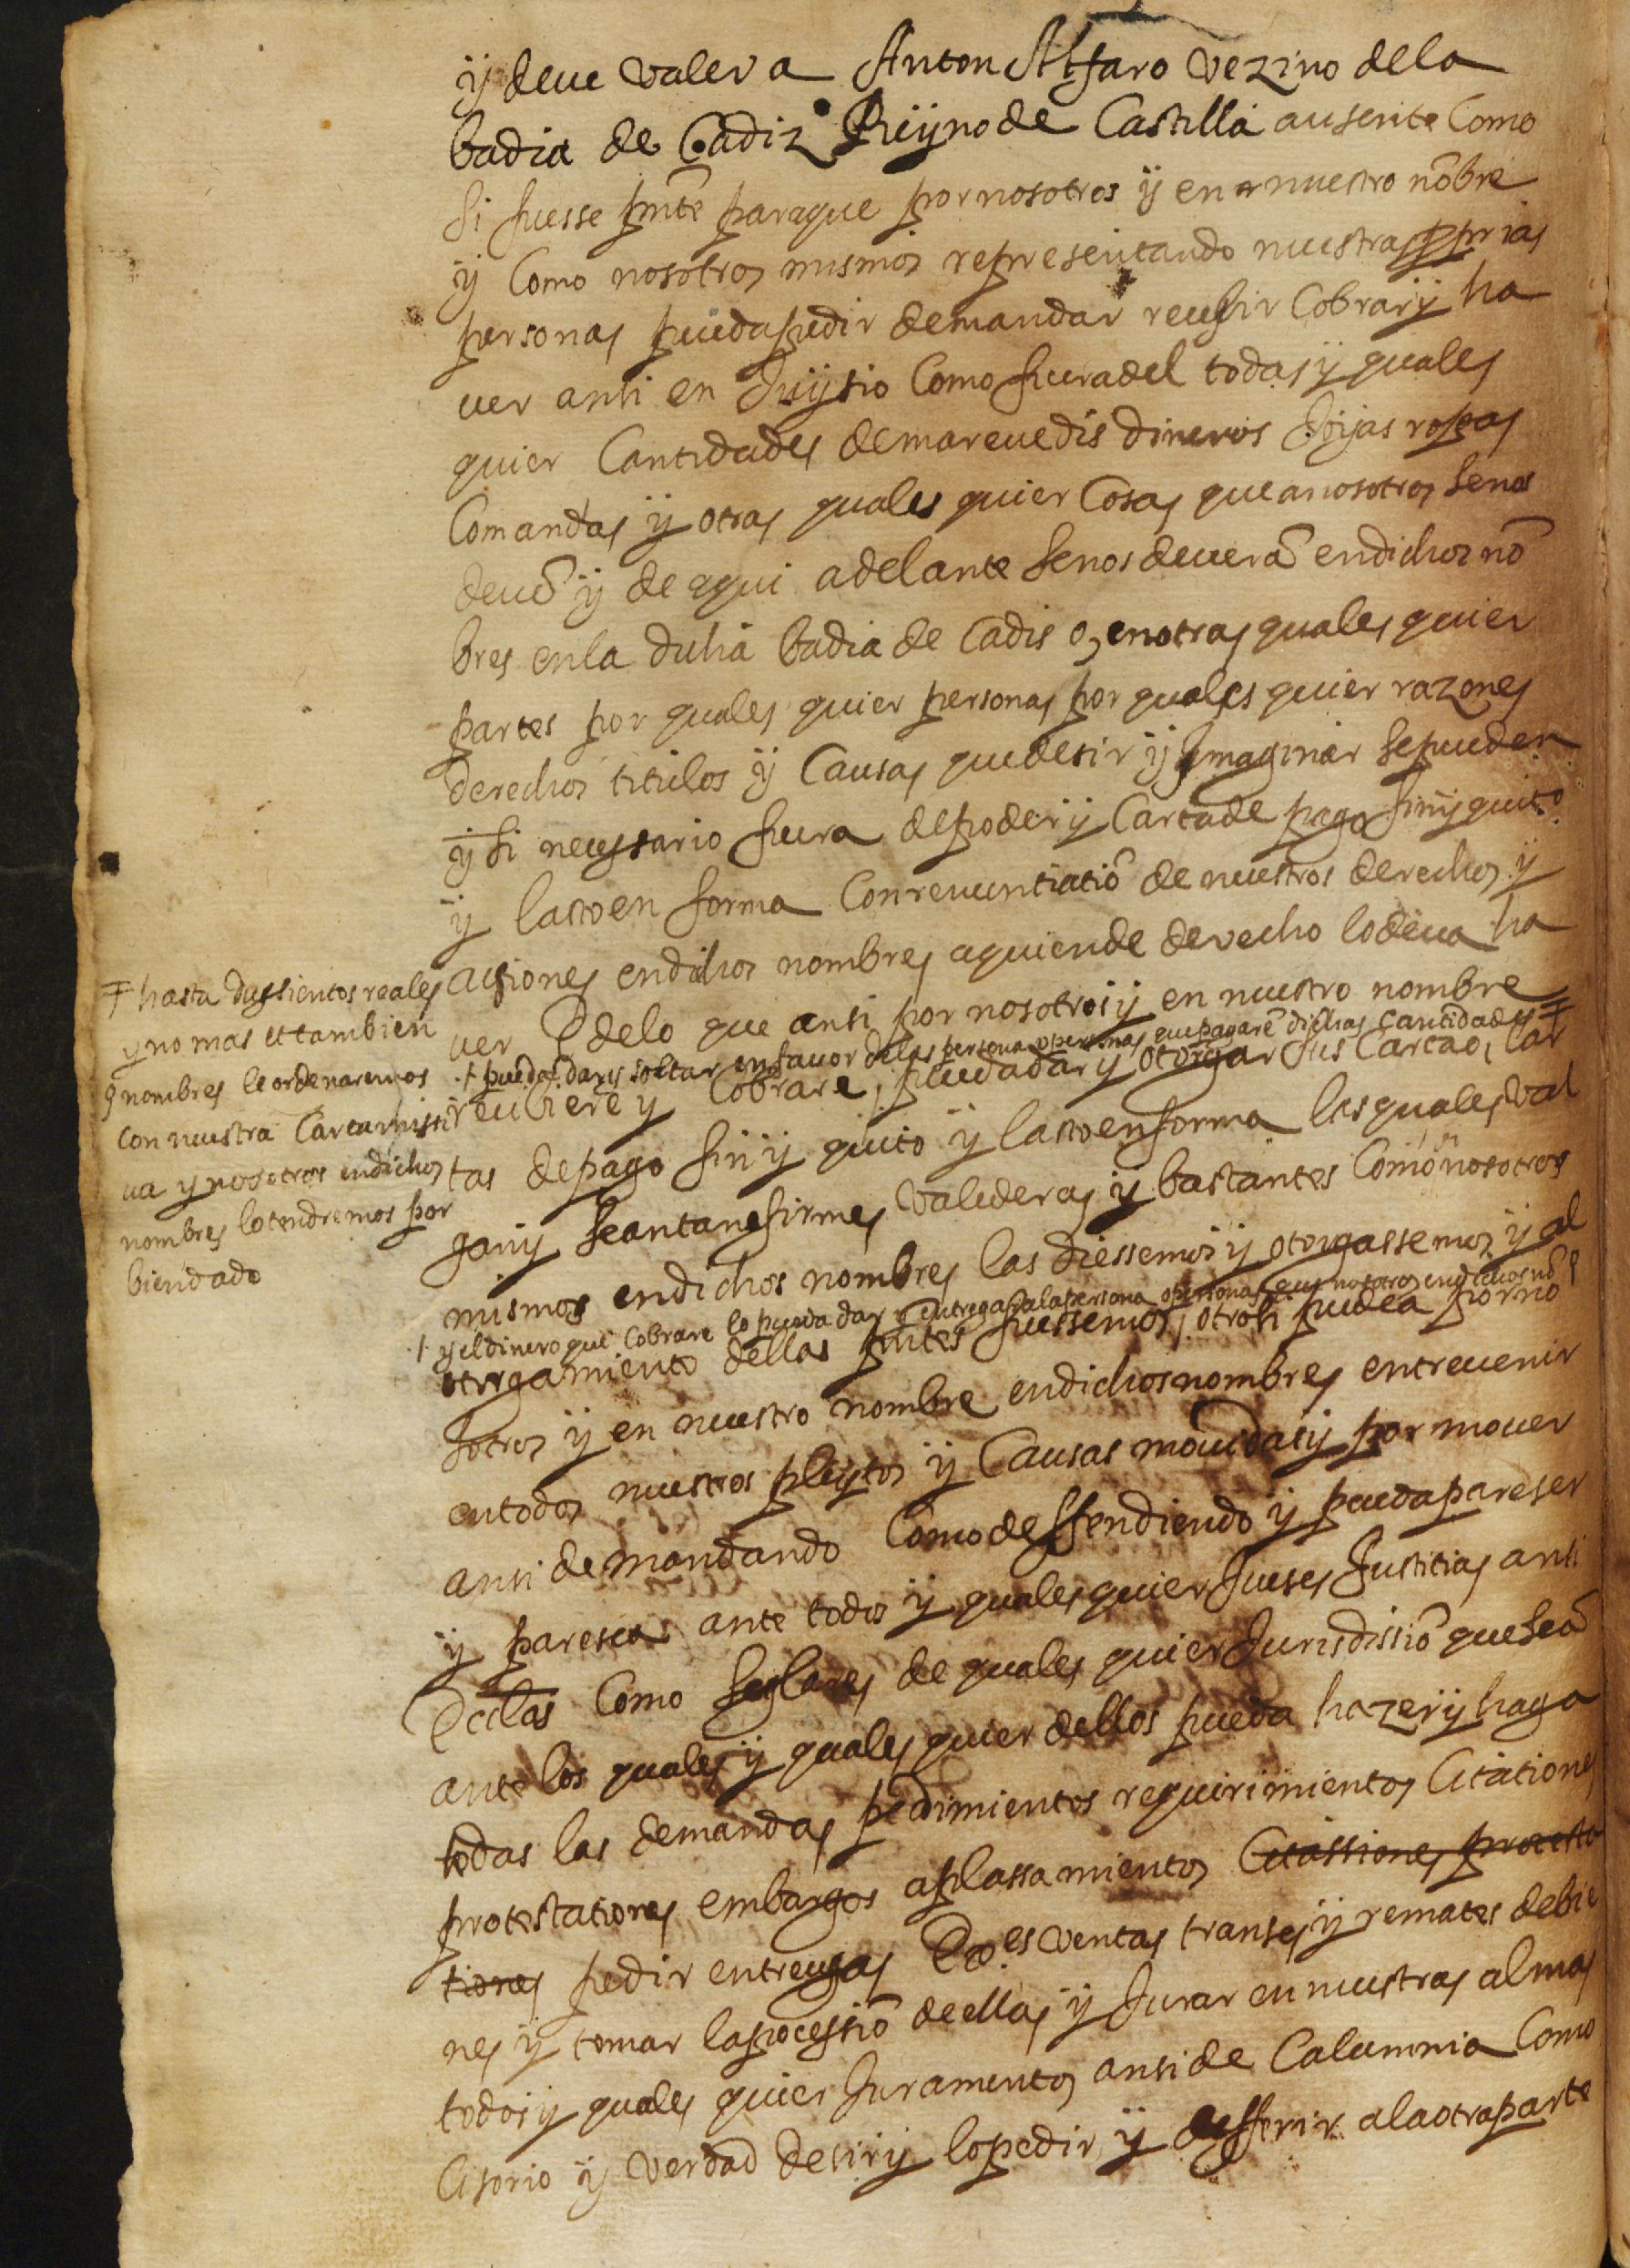 y deue valer a Anton Alfaro vezino de la
badia de Cadiz Reyno de Castilla ausente Como
si fuesse pnte para que por nosotros y en nuestro nōbre
y Como nosotros mismos representando nuestras pprias
personas pueda pedir demandar resebir Cobrar y ha
uer ansi en Juysio Como fuera del todas y quales
quier Cantidades de marevedis dineros Joyas ropas
Comandas y otras quales quier Cosas que a nosotros se nos
deuē y de aqui adelante se nos deuerā en dichos nō
bres en la dicha badia de Cadis o, en otras quales quier
partes por quales quier personas por quales quier razones
derechos titulos y Causas que desir y Imaginar se pueden
y si nesessario fuera de poder y Carta de pago fin y quito
y lasto en forma Con renuntiatiō de nuestros derechos y
actiones en dichos nombres a quien de derecho lo deua ha
uer E de lo que ansi por nosotros y en nuestro nombre
·+ pueda dar y soltar en fauor de las persona o personas que pagarē dichas Cantidades ∓
resibiere y Cobrare, pueda dar y otorgar sus Carta o, Car
tas de pago fin y quito y lasto en forma las quales Val
gan y sean tan firmes Valederas y bastantes Como nosotros
mismos en dichos nombres las diessemos y otorgassemos y al
·/· y el dinero que Cobrare lo pueda dar y entregar a la persona o personas que nosotros en dichos nō
otorgamiento dellas pntes fuessemos, otrosi pueda por no
sotros y en nuestro nombre en dichos nombres entreuenir
en todos nuestros pleytos y Causas mouidas y por mouer
ansi demandando Como deffendiendo y pueda pareser
y paresca ante todos y quales quier Jueses Justitias ansi
Ecclas Como seglares de quales quier Jurisdissiō que seā
ante los quales y quales quier dellos pueda hazer y haga
todas las demandas pedimientos requirimientos Citationes
protestationes embargos aplassamientos Citassiones protesta
tiones pedir entregas Exes ventas transes y remates de bie
nes y tomar la pocessiō de ellas y Jurar en nuestras almas
todos y quales quier Juramentos ansi de Calumnia Como
Cisorio y verdad desir y lo pedir y defferir a la otra parte
∓ hasta dussientos reales
y no mas et tambien
nombres le ordenaremos
con nuestra Carta missi
ua y nosotros en dichos
nombres lo tendremos por
bien dado